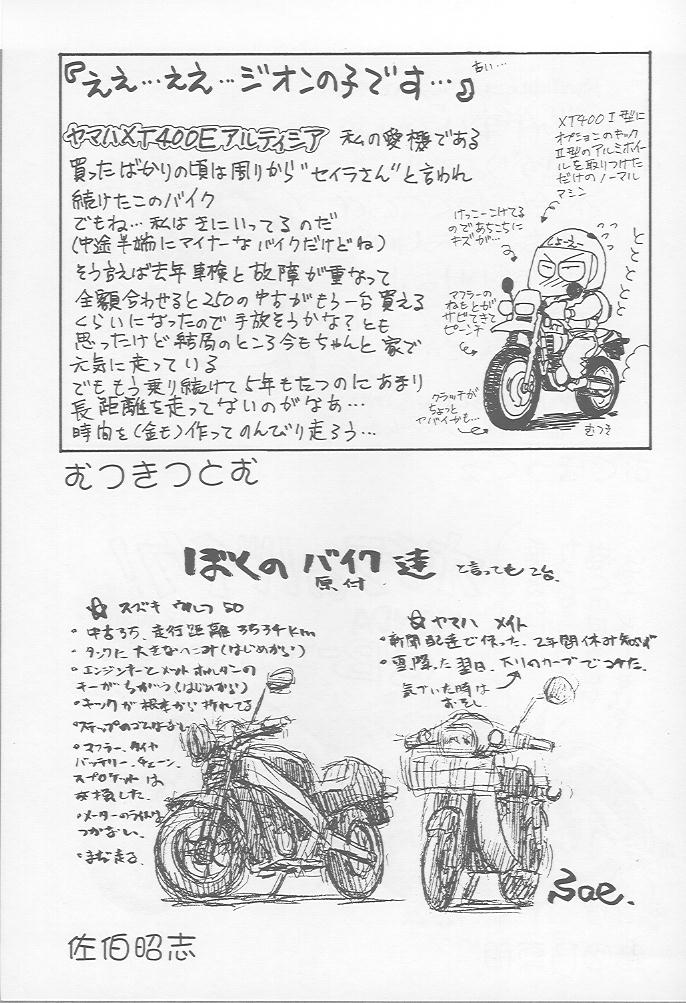 『ええ…ええ…ジオンの子です…』
古い…
ヤマハXT400E アルティシア 私の愛機である
買ったばかりの頃は周りから"セイラさん"と言われ
続けたこのバイク
でもね…私は気にいってるのだ
(中途半端にマイナーなバイクだけどね)
そう言えば去年車検と故障が重なって
全額合わせると250の中古がもう一台買える
くらいになったので手放そうかな?とも
思ったけど結局のところ今もちゃんと家で
元気に走っている
でももう乗り続けて5年もたつのにあまり
長距離を走ってないのがなあ…
時間を(金も)作ってのんびり走ろう…
XT400I型に
オプションのキック
II型のアルミホイー
ルを取りつけた
だけのノーマル
マシン
けっこーこけてる
のであちこちに
キズが…
マフラーの
ねもとが
サビてきて
ピーンチ
クラッチが
ちょっと
ヤバイかも…
しょーえー
トトトトトト
むつき
むつきつとむ
ぼくのバイク達 と言っても2台.
原付
☆スズキ ウルフ50
・中古3.5. 走行距離3534km
・タンクに大きなへこみ(はじめから)
・エンジンキーとメットホルダーの
キーがちがう(はじめから)
・キックが根本から折れてる
・ステップのゴムはない
・マフラー. タイヤ
バッテリー. チェーン.
スプロケットは
交換した.
・メーターのライトは
つかない.
・まだ走る.
☆ヤマハ メイト
・新聞配達で使った. 2年間休み知らず
・雪降った翌日. 下りのカーブでコケた.
気づいた時は
おそし.
Sae.
佐伯昭志